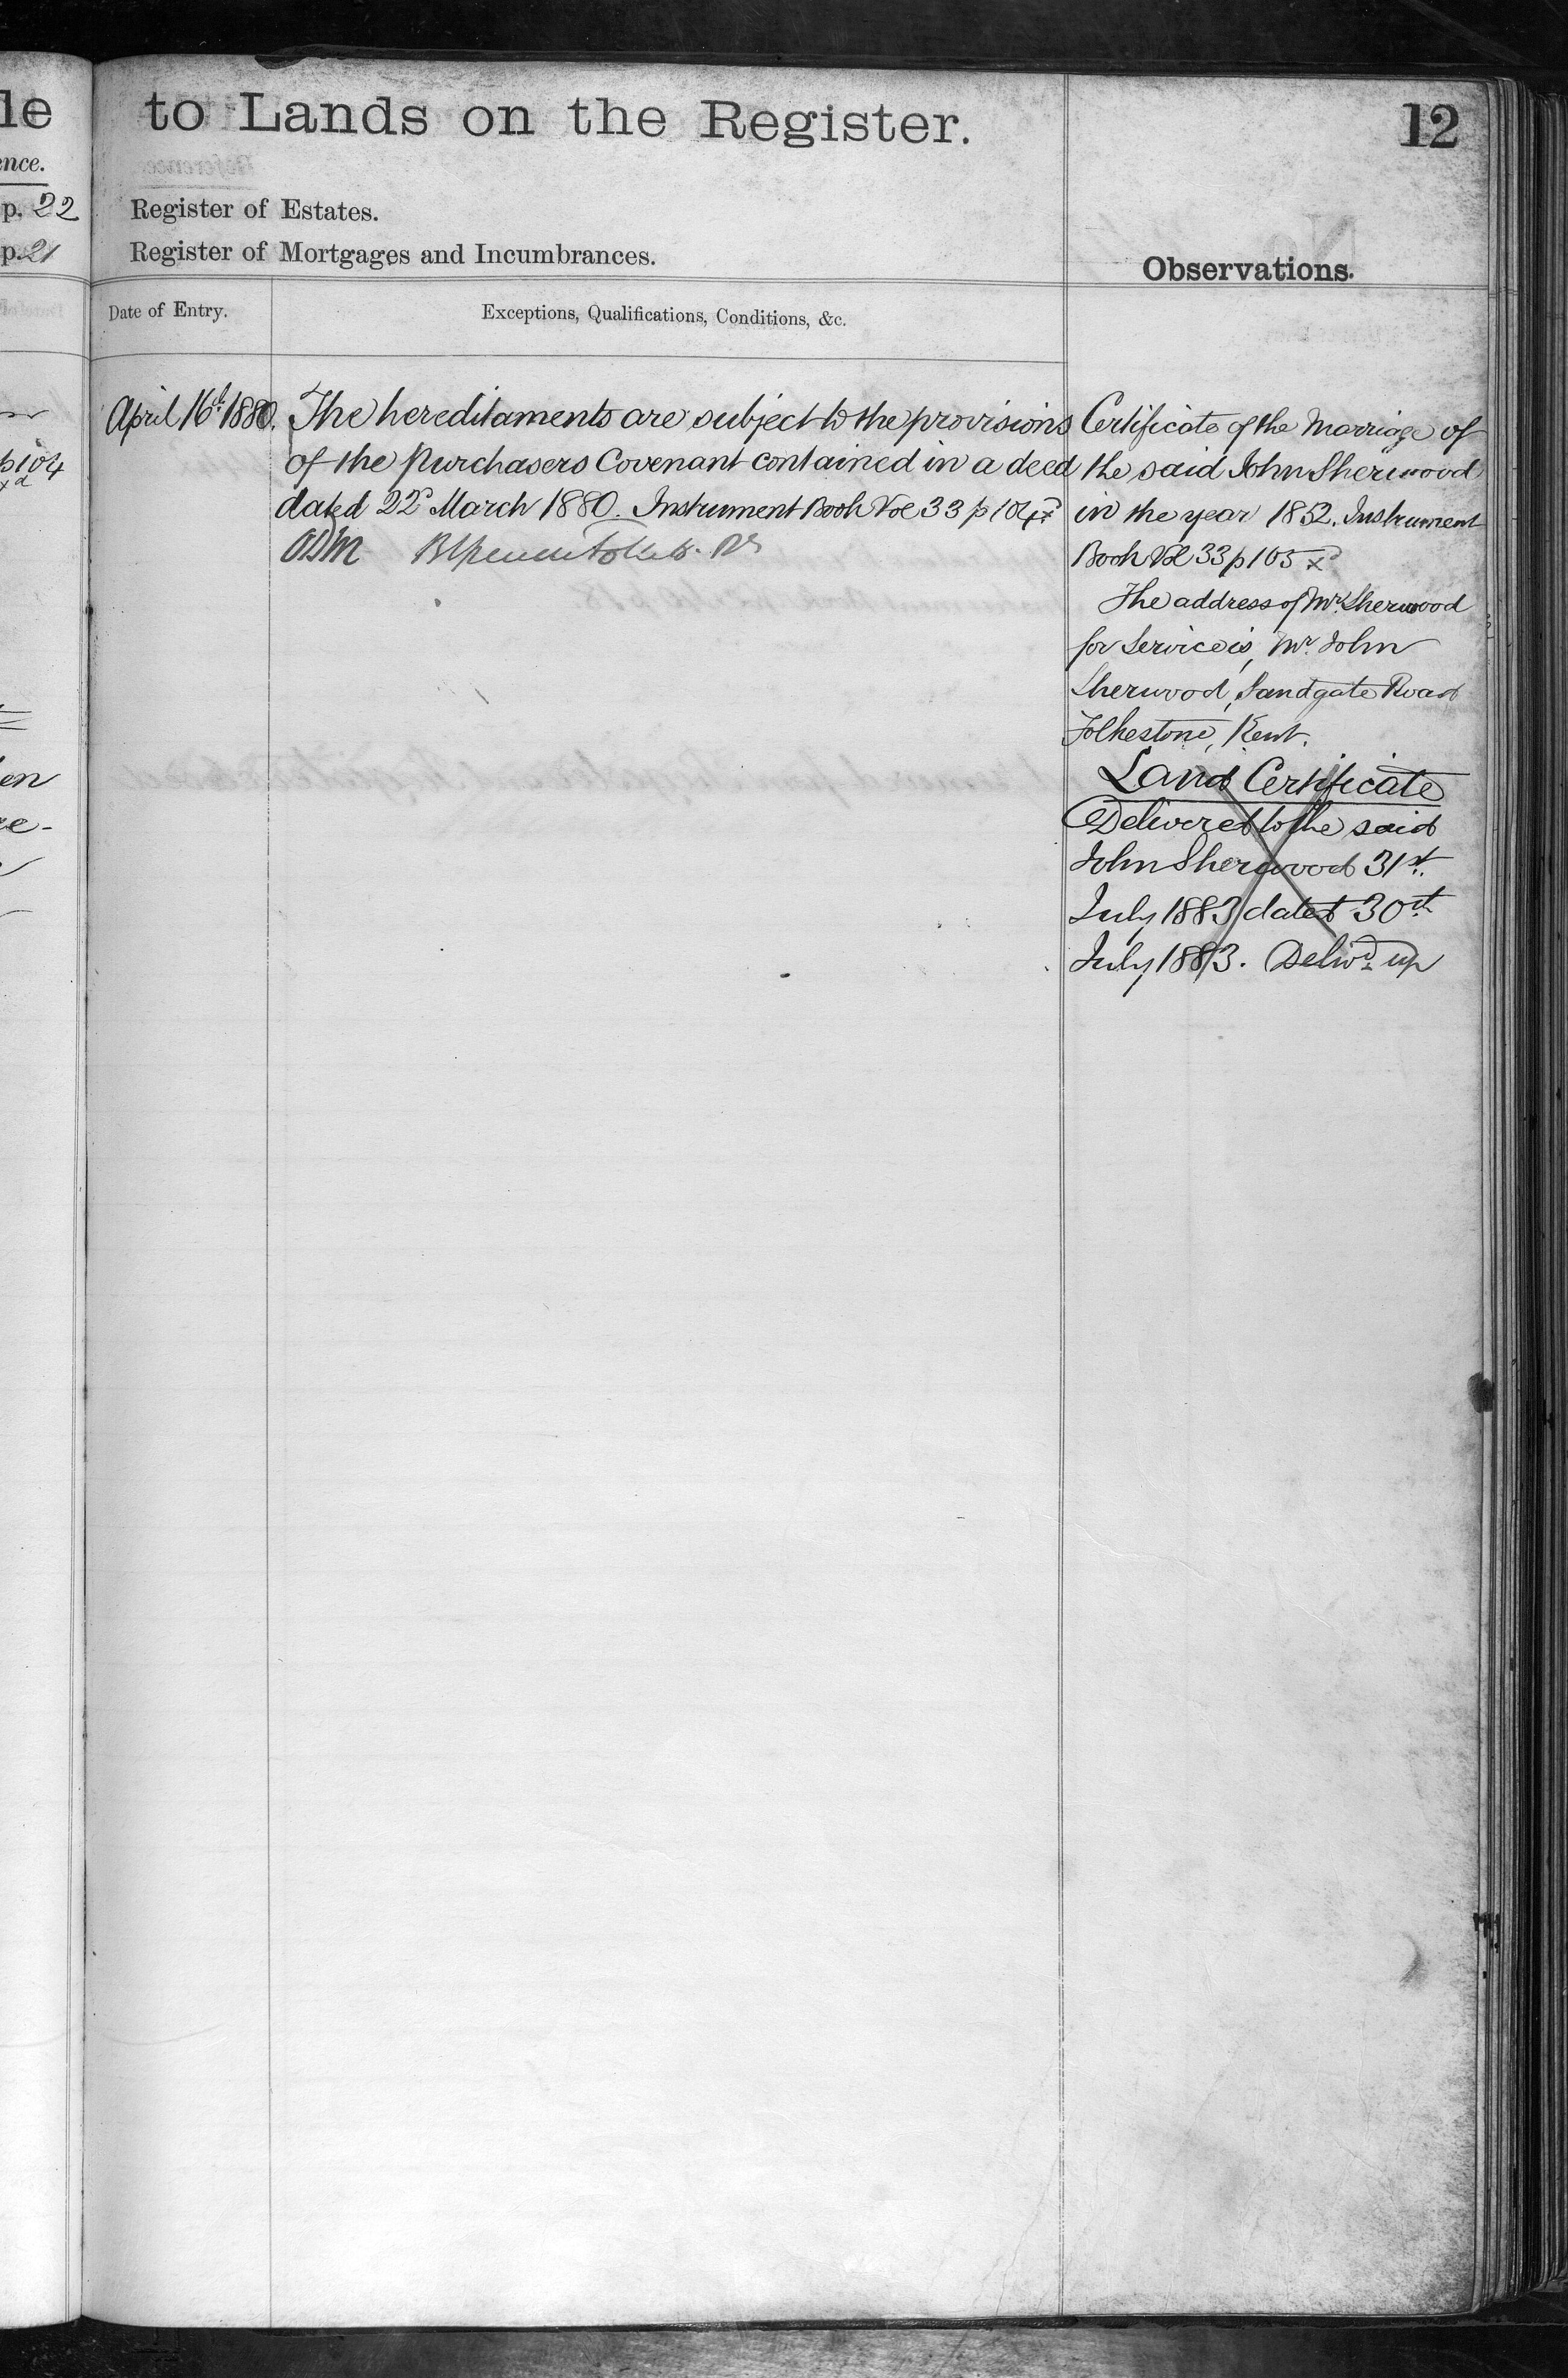 le
to Lands on the Register.
12
ence.
p. 22
Register of Estates.
p. 21
Register of Mortgages and Incumbrances.
Observations.
Date of Entry.
Exceptions, Qualifications, Conditions, &c.
April 16th 1880.
The hereditaments are subject to the provisions
of the Purchasers Covenant contained in a deed
dated 22d March 1880. Instrument Book Vol 33 p 104 xd
p104
xd
en
re-
Certificate of the Marriage of
the said John Sherwood
in the year 1852. Instrument
Book Vol 33 p 105 xd
The address of Mr. Sherwood
for Service is, Mr. John
Sherwood, Sandgate Road
Folkestone, Kent.
Land Certificate
Delivered to the said
John Sherwood 31st.
July 1883 dated 30th
July 1883. Delivd. up